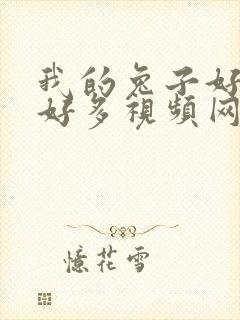 我的兔子好
好多視頻网
憶花雪